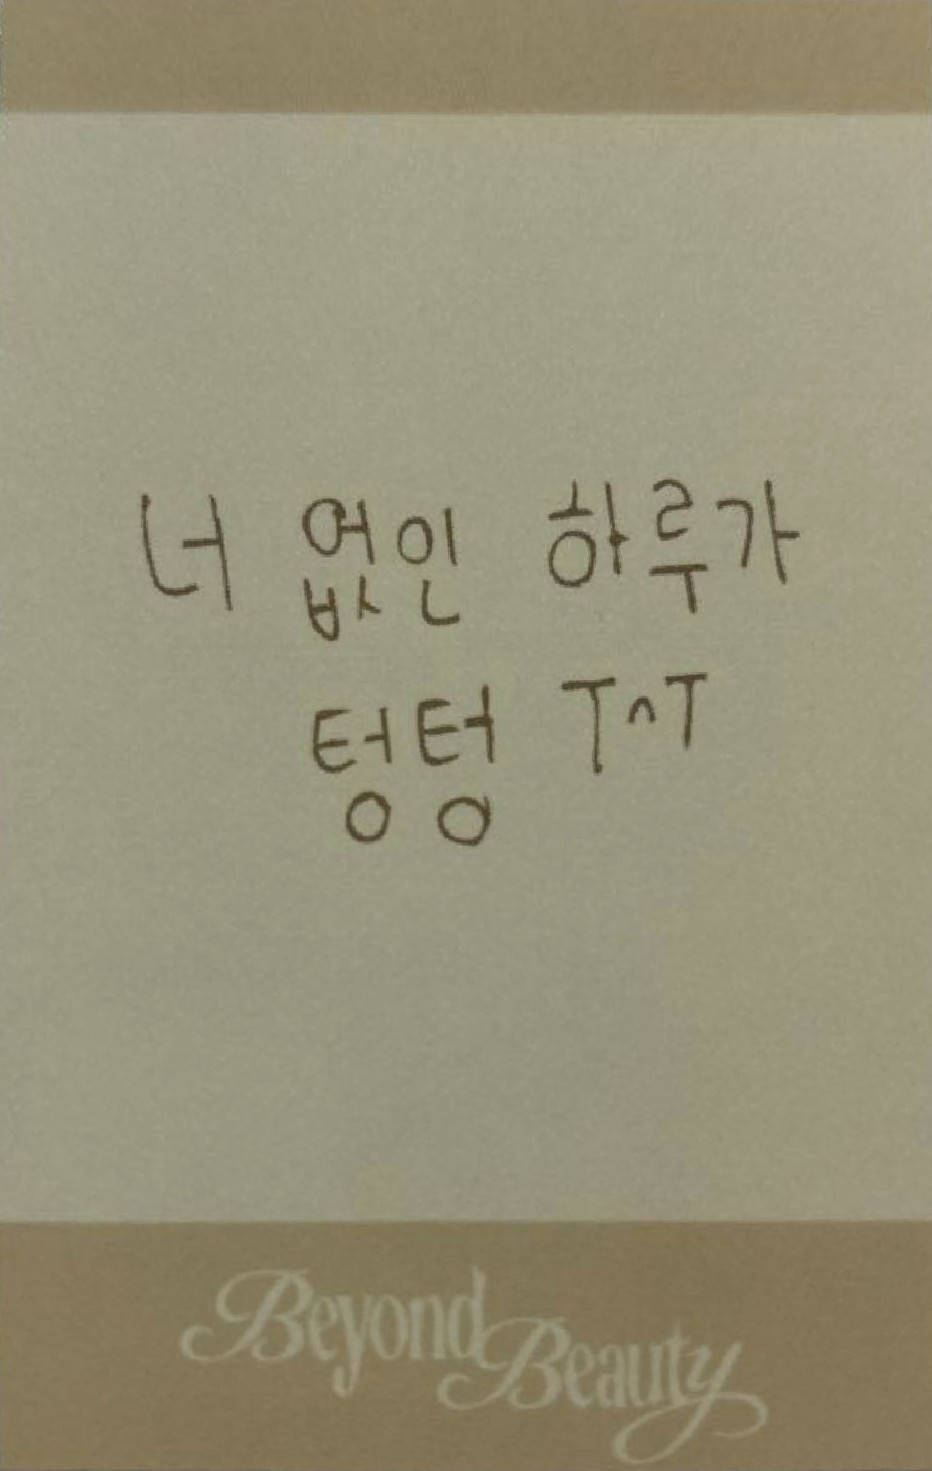 너 없인 하루가
텅텅 T^T
Beyond
Beauty